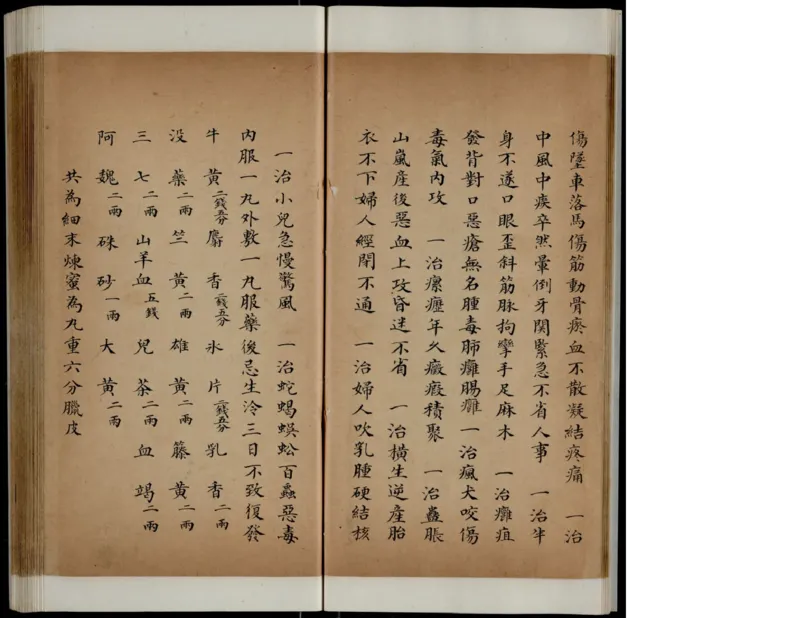 傷墜車落馬傷筋動骨瘀血不散凝結疼痛　一治
中風中痰卒然暈倒牙關緊急不省人事　一治半
身不遂口眼歪斜筋脉拘攣手足麻木　一治癰疽
發背對口惡瘡無名腫毒肺癰腸癰　一治瘋犬咬傷
毒氣內攻　一治瘰癧年久癥瘕積聚　一治蠱脹
山嵐產後惡血上攻昏迷不省　一治橫生逆產胎
衣不下婦人經閉不通　一治婦人吹乳腫硬結核
一治小兒急慢驚風　一治蛇蝎蜈蚣百蟲惡毒
內服一丸外敷一丸服藥後忌生冷三日不致復發
牛黃二錢五分　麝香二錢五分　氷片二錢五分　乳香二兩
没藥二兩　竺黃二兩　雄黃二兩　籐黃二兩
三七二兩　山羊血五錢　兒茶二兩　血竭二兩
阿魏二兩　硃砂一兩　大黃二兩
共為細末煉蜜為丸重六分臘皮